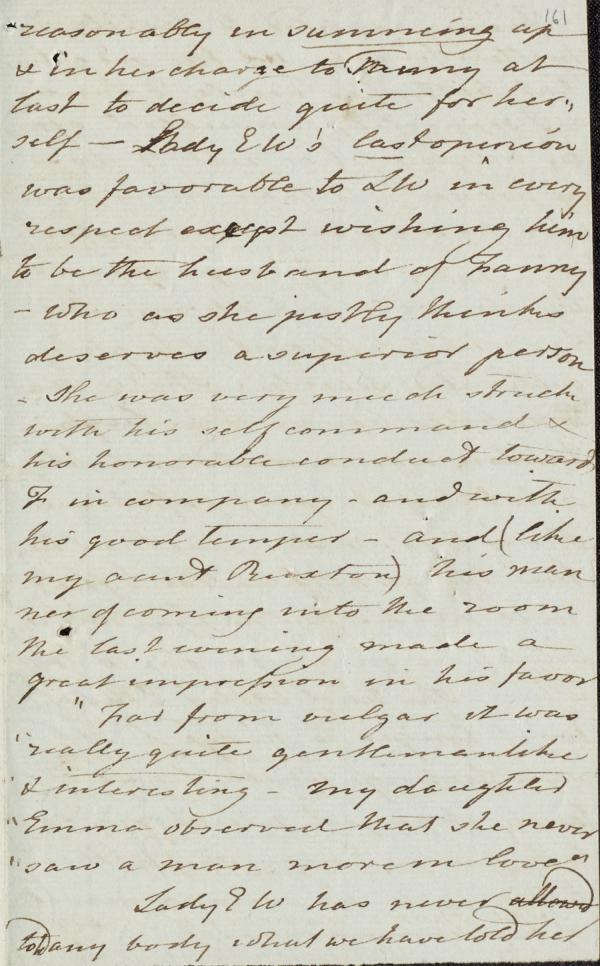 161
"reasonably in summing up
& in her charge to Fanny at
last to decide quite for her„
self — Lady E W's last opinion
was favorable to LW in every
respect except wishing him
to be the husband of Fanny
- who as she justly thinks
deserves a superior person
- She was very much struck
with his self command &
his honorable conduct towards
F in company - and with
his good temper - and (like
my aunt Ruxton) his man
ner of coming into the room
the last evening made a
great impression in his favor
" Far from vulgar it was
"really quite gentlemanlike
"& interesting - my daughter
"Emma observed that she never
"saw a man more in love"
Lady E W has never allowed
told any body what we have told her